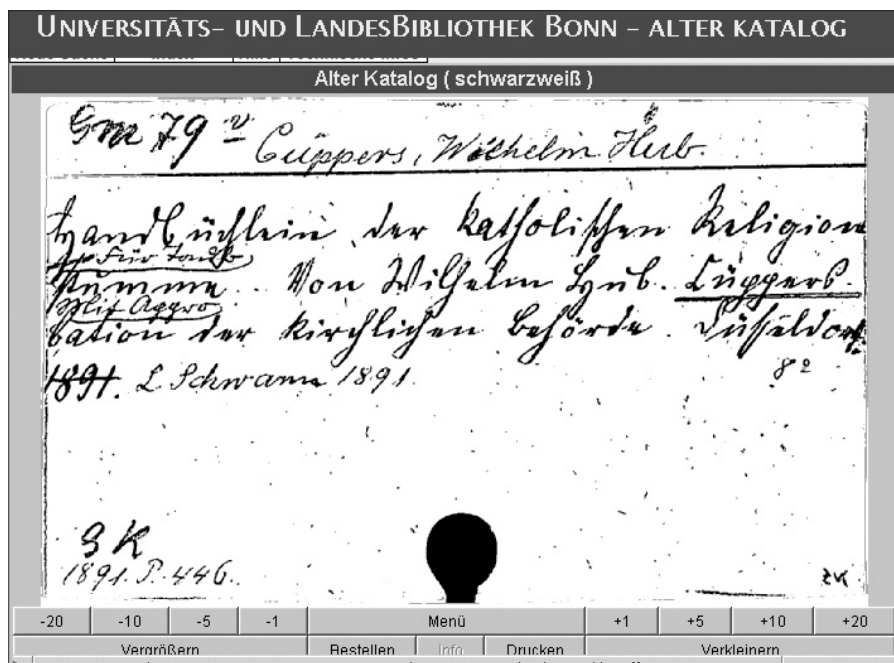 UNIVERSITÄTS- UND LANDESBIBLIOTHEK BONN - ALTER KATALOG
Alter Katalog ( schwarzweiß )
Gm 79 v Cüppers, Wilhelm Hub.
Handbüchlein der katholischen Religion
Für Taub-
stumme. Von Wilhelm Hub. Cüppers.
Mit Appro-
bation der kirchlichen Behörde. Düsseldorf.
1891. L Schwann 1891. 8º
1891. P. 446.
ZK
-20 -10 -5 -1 Menü +1 +5 +10 +20
Vergrößern Bestellen Info Drucken Verkleinern